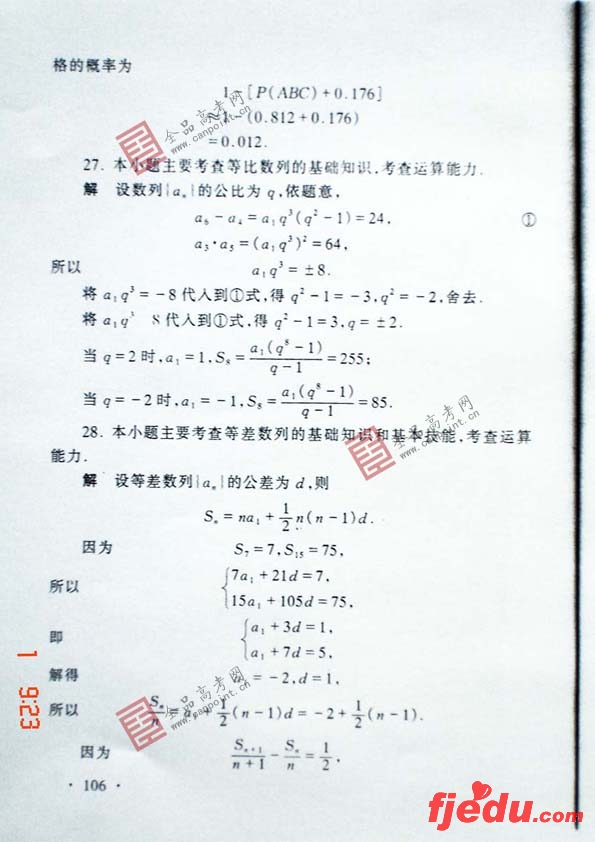 格的概率为
1-[P(ABC)+0.176]
≈1-(0.812+0.176)
=0.012.
27. 本小题主要考查等比数列的基础知识,考查运算能力.
解 设数列{aₙ}的公比为 q,依题意,
a₆-a₄=a₁q³(q²-1)=24, ①
a₃·a₅=(a₁q³)²=64,
所以 a₁q³=±8.
将 a₁q³=-8 代入到①式,得 q²-1=-3,q²=-2,舍去.
将 a₁q³ 8 代入到①式,得 q²-1=3,q=±2.
当 q=2 时,a₁=1,S₈=a₁(q⁸-1)/(q-1)=255;
当 q=-2 时,a₁=-1,S₈=a₁(q⁸-1)/(q-1)=85.
28. 本小题主要考查等差数列的基础知识和基本技能,考查运算
能力.
解 设等差数列{aₙ}的公差为 d,则
Sₙ=na₁+1/2n(n-1)d.
因为 S₇=7,S₁₅=75,
所以 {7a₁+21d=7,
15a₁+105d=75,
即 {a₁+3d=1,
a₁+7d=5,
解得 a₁=-2,d=1,
所以 Sₙ/n=a₁+1/2(n-1)d=-2+1/2(n-1).
因为 Sₙ₊₁/(n+1)-Sₙ/n=1/2,
· 106 ·
全品高考网
www.canpoint.cn
全品高考网
www.canpoint.cn
全品高考网
www.canpoint.cn
1 9:23
fjedu.com